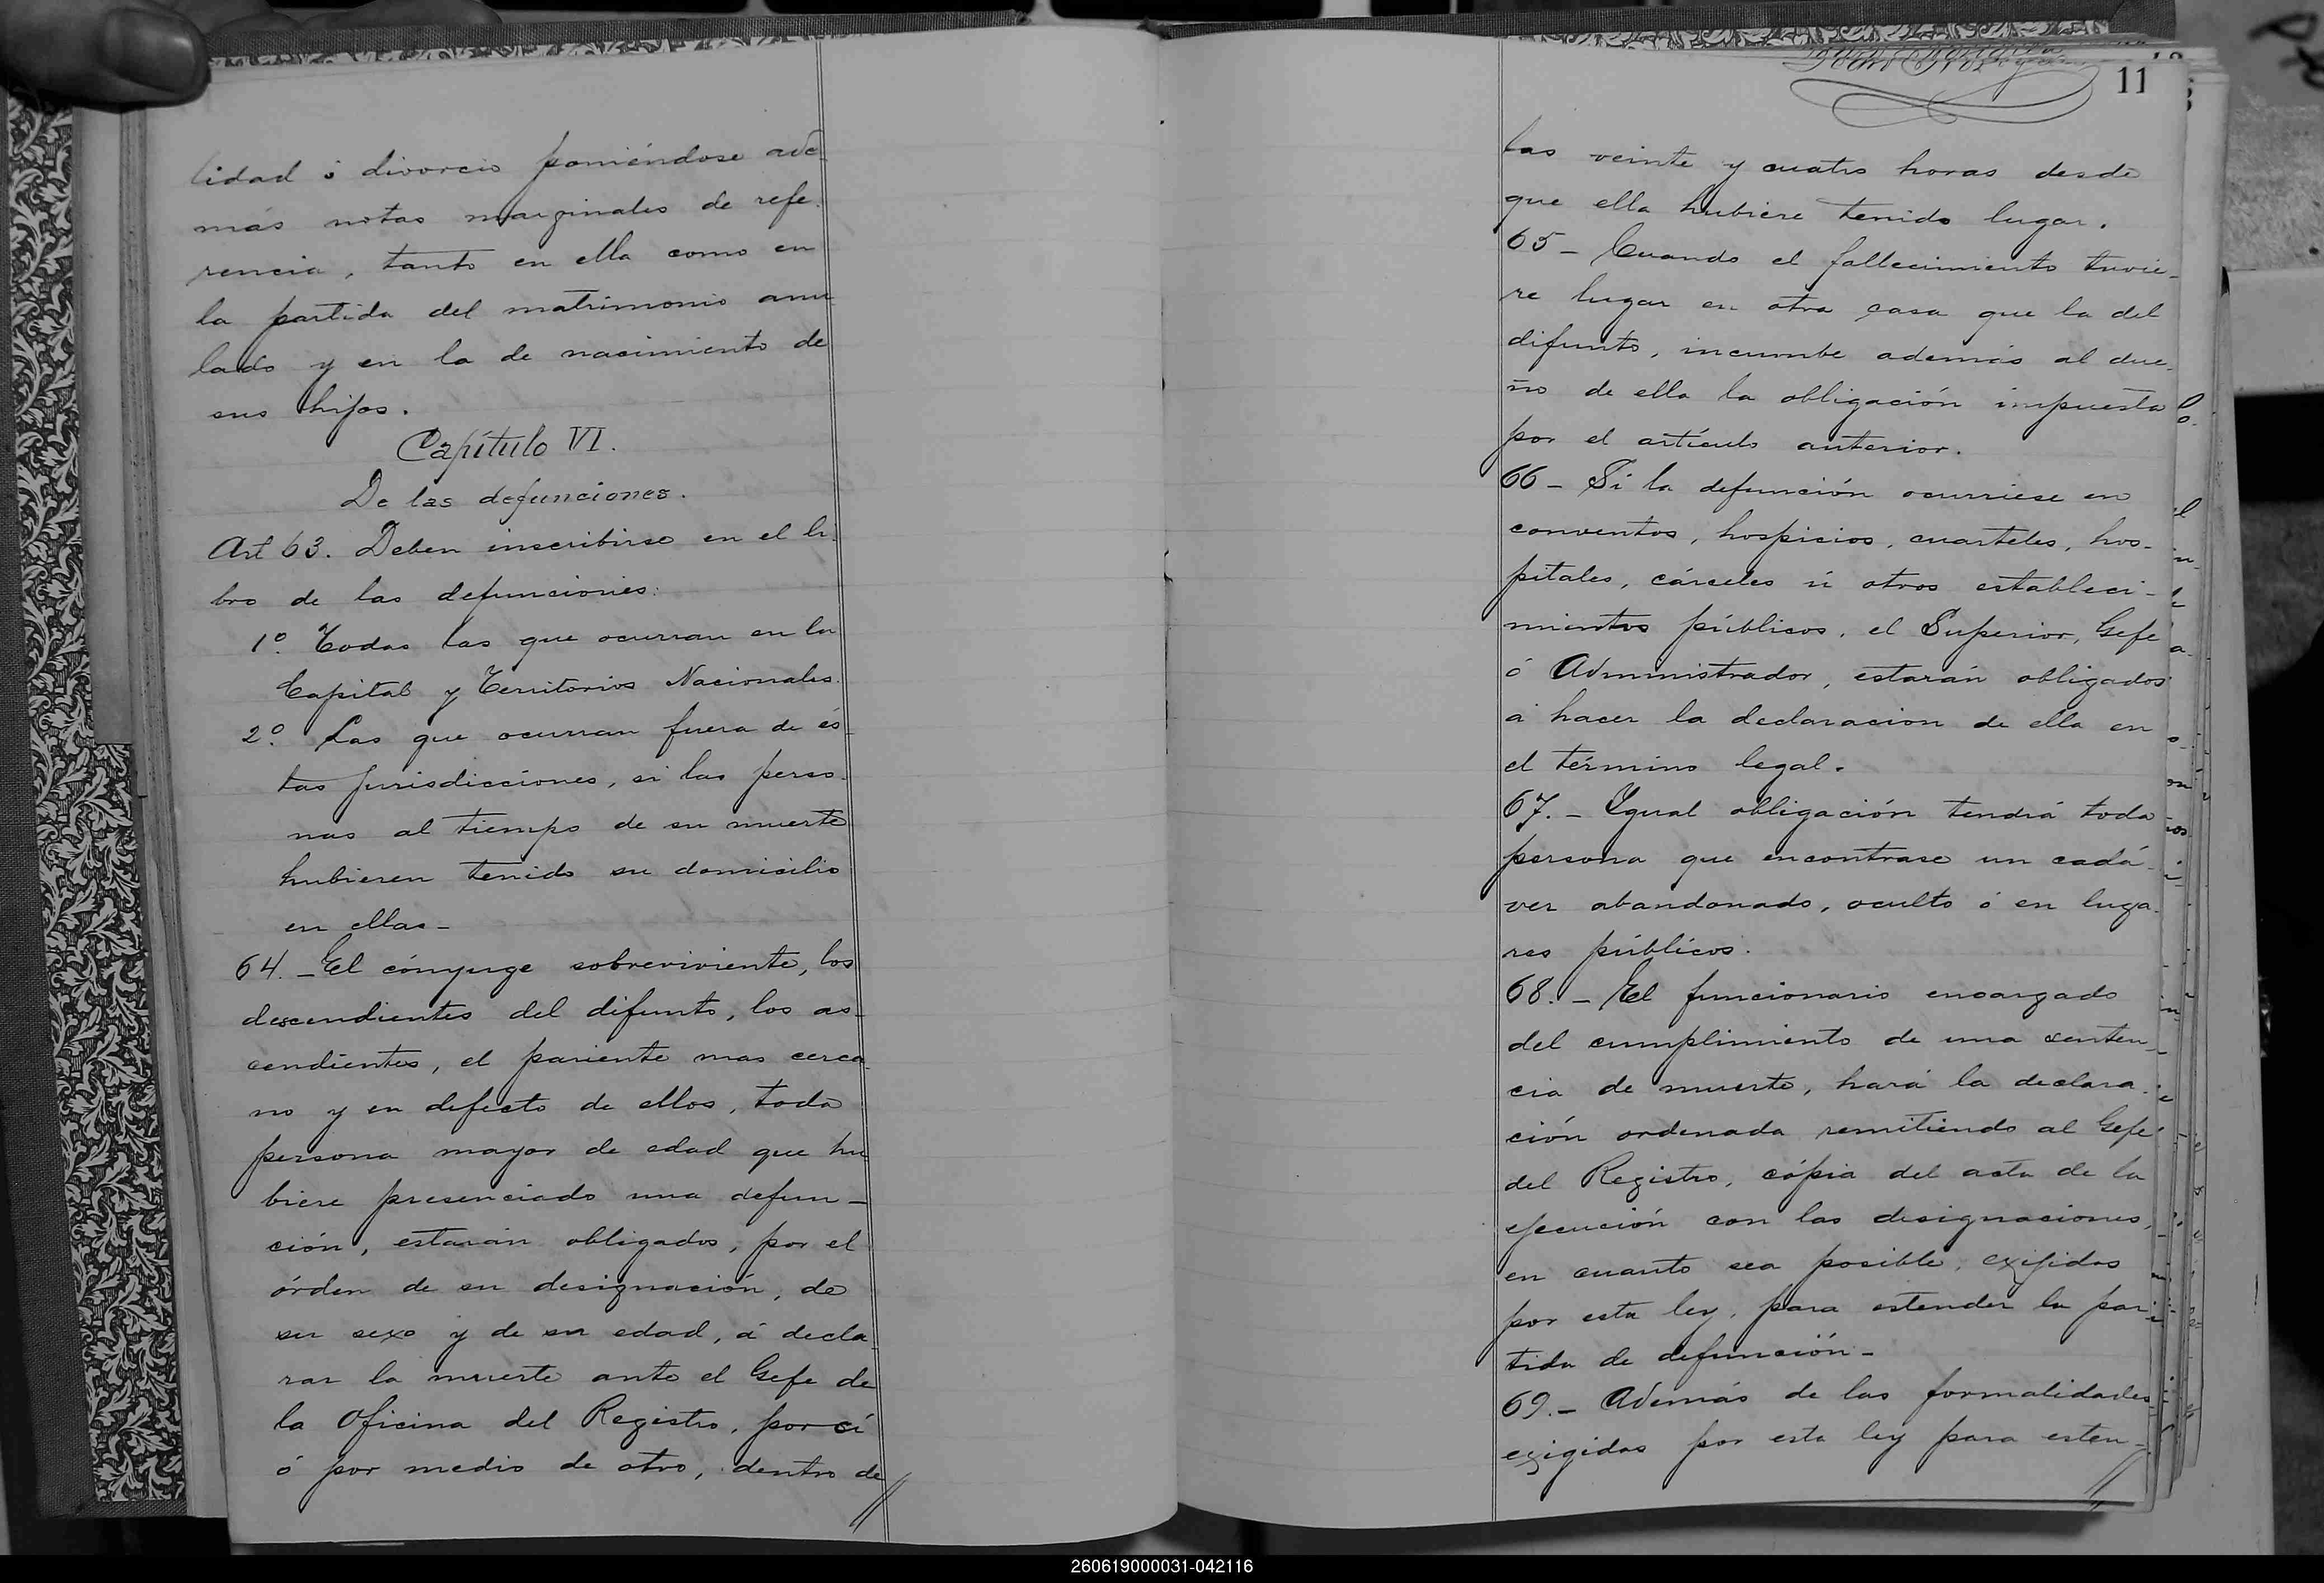 lidad ó divorcio poniéndose ade
más notas marginales de refe-
rencia, tanto en ella como en
la partida del matrimonio anu
lado y en la de nacimiento de
sus hijos.
Capítulo VI.
De las defunciones.
Art 63. Deben inscribirse en el li-
bro de las defunciones:
1º. Todas las que ocurran en la
Capital y Territorios Nacionales.
2º. Las que ocurran fuera de és-
tas jurisdicciones, si las perso-
nas al tiempo de su muerte
hubieren tenido su domicilio
en ellas-
64.-El cónyuge sobreviviente, los
descendientes del difunto, los as-
cendientes, el pariente mas cerca-
no y en defecto de ellos, toda
persona mayor de edad que hu
biere presenciado una defun-
ción, estarán obligados, por el
órden de su designación, de
su sexo y de su edad, á decla-
rar la muerte ante el Gefe de
la Oficina del Registro, por sí
ó por medio de otro, dentro de
11
las veinte y cuatro horas desde
que ella hubiere tenido lugar.
65- Cuando el fallecimiento tuvie-
re lugar en otra casa que la del
difunto, incumbe además al due-
ño de ella la obligación impuesta
por el artículo anterior.
66- Si la defunción ocurriese en
conventos, hospicios, cuarteles, hos-
pitales, cárceles ú otros estableci-
mientos públicos, el Superior, Gefe
ó Administrador, estarán obligados
á hacer la declaracion de ella en
el término legal.
67.- Igual obligación tendrá toda
persona que encontrase un cadá-
ver abandonado, oculto ó en luga-
res públicos.
68.- El funcionario encargado
del cumplimiento de una senten-
cia de muerte, hará la declara-
ción ordenada remitiendo al Gefe
del Registro, cópia del acta de la
ejecución con las designaciones,
en cuanto sea posible, exijidas
por esta ley, para estender la par-
tida de defunción-
69.- Además de las formalidades
exigidas por esta ley para esten-
260619000031-042116